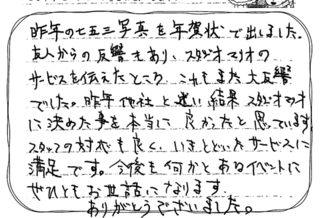 昨年の七五三写真を年賀状で出しました。
友人からの反響もあり、スタジオマリオの
サービスを伝えたところ これもまた大反響
でした。昨年他社と迷い結果スタジオマリオ
に決めた事を本当に良かったと思っています。
スタッフの対応も良く、いきとどいたサービスに
満足です。今後も何かとあるイベントに
ぜひともお世話になります。
ありがとうございました。